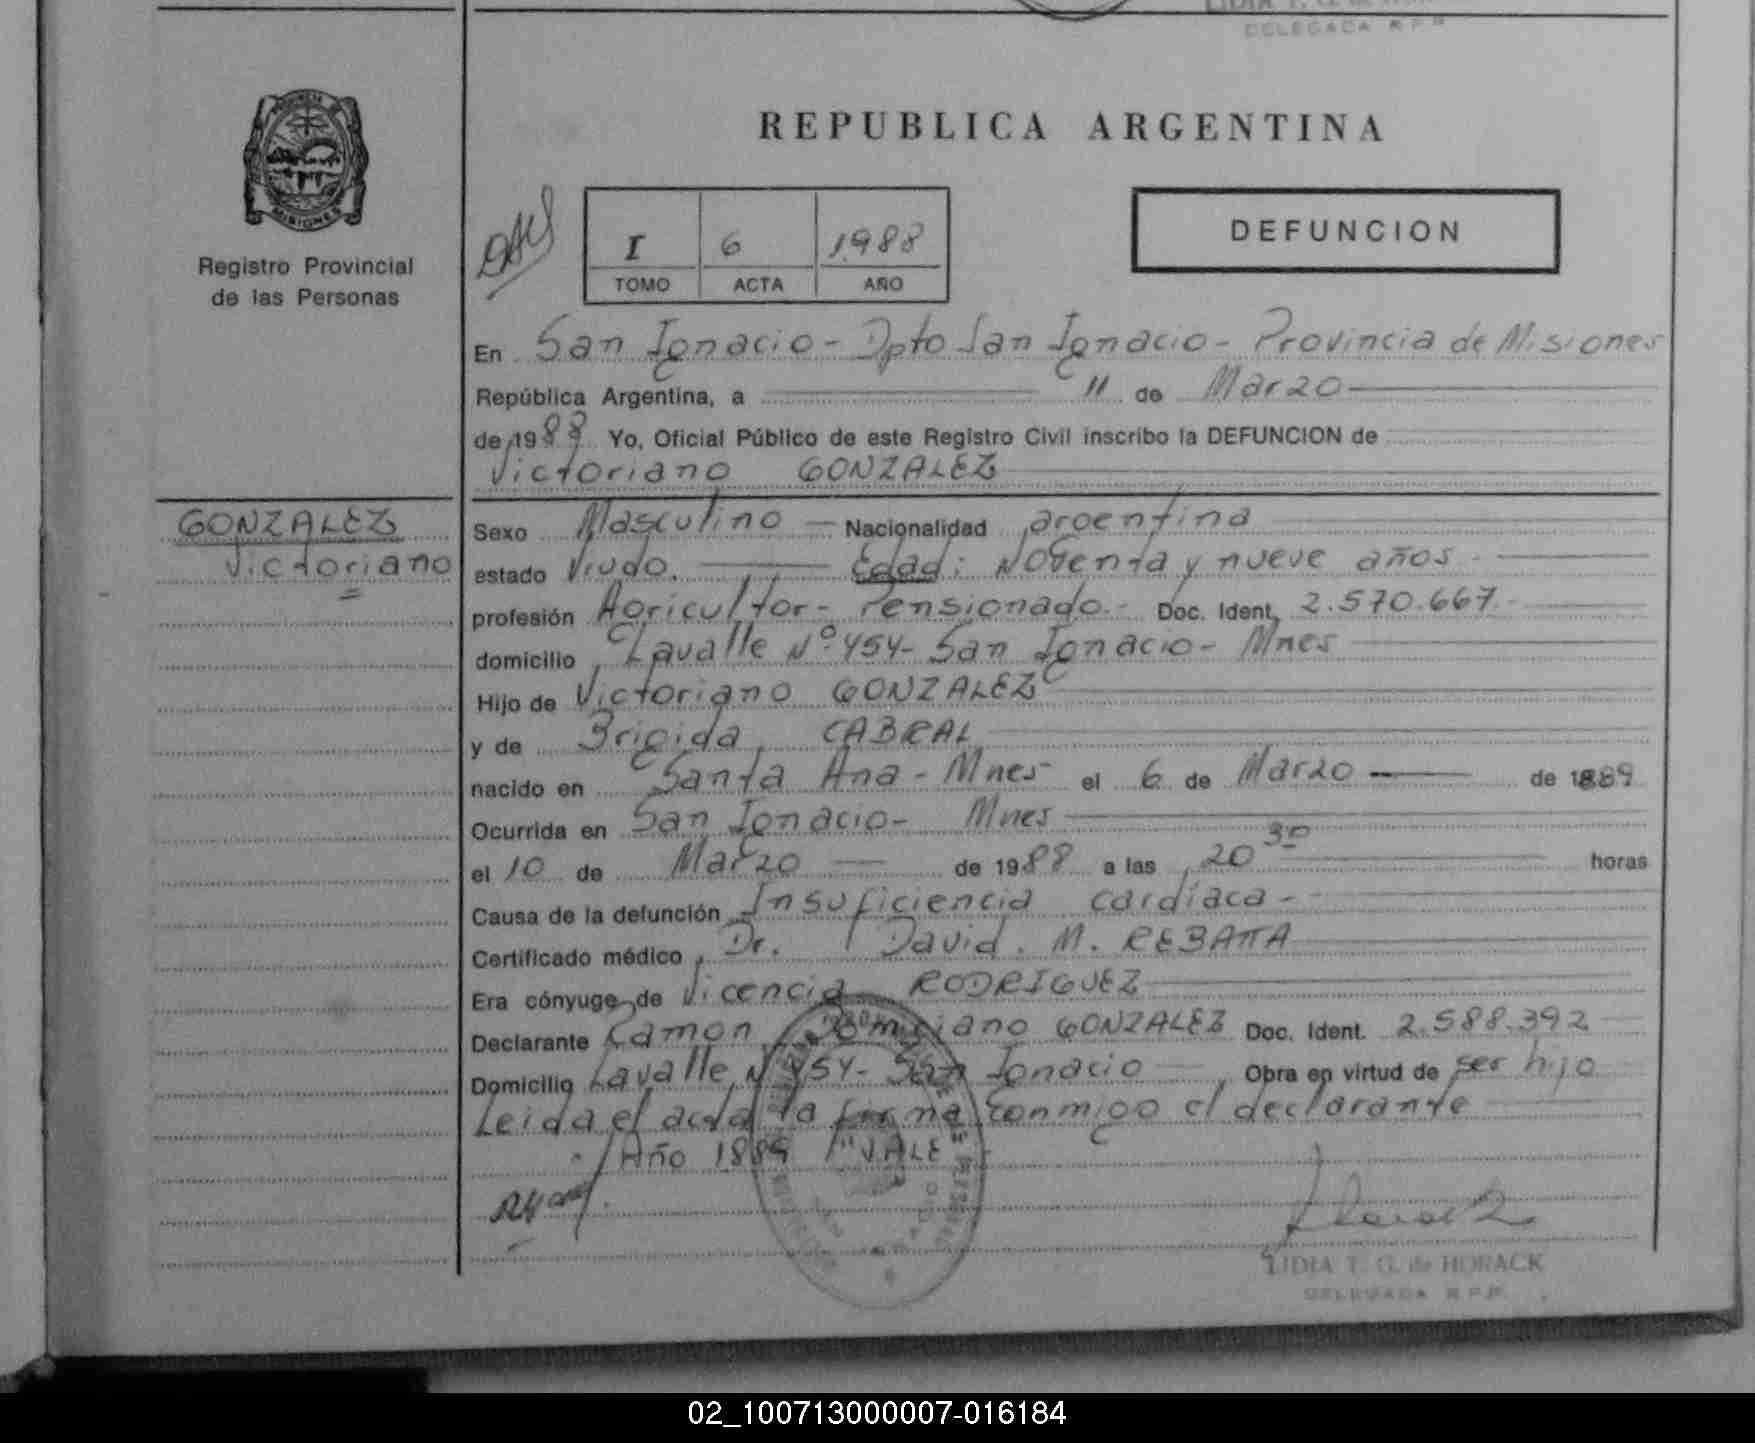 DELEGADA R.P.P.
PROVINCIA DE
MISIONES
Registro Provincial
de las Personas
REPUBLICA ARGENTINA
I 6 1988
TOMO ACTA AÑO
DEFUNCION
En San Ignacio - Dpto San Ignacio - Provincia de Misiones
República Argentina, a 11 de Marzo
de 1988 Yo, Oficial Público de este Registro Civil inscribo la DEFUNCION de
Victoriano GONZALEZ
GONZALEZ
Victoriano
Sexo Masculino Nacionalidad argentina
estado Viudo. Edad: Noventa y nueve años
profesión Agricultor - Pensionado. - Doc. Ident. 2.570.667. -
domicilio Lavalle Nº 454 - San Ignacio - Mnes
Hijo de Victoriano GONZALEZ
y de Brigida CABRAL
nacido en Santa Ana - Mnes el 6 de Marzo de 1889
Ocurrida en San Ignacio - Mnes
el 10 de Marzo de 1988 a las 20 30 horas
Causa de la defunción Insuficiencia cardíaca -
Certificado médico Dr. David. M. REBATTA
Era cónyuge de Vicencia RODRIGUEZ
Declarante Ramon Domiciano GONZALEZ Doc. Ident. 2.588.392
Domicilio Lavalle N 454 - San Ignacio Obra en virtud de ser hijo
Leida el acta la firma conmigo el declarante
Año 1889 "VALE"
LIDIA T. G. de HORACK
DELEGADA R.P.P.
02_100713000007-016184